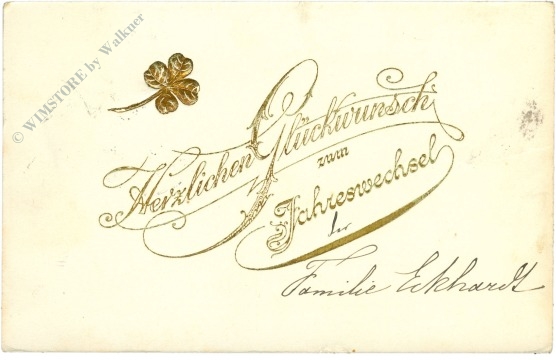 © WIMSTORE by Walkner
Herzlichen Glückwunsch
zum
Jahreswechsel
der
Familie Eckhardt